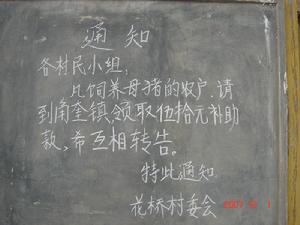 通知
各村民小组:
凡饲养母猪的农户,请
到角奎镇领取伍拾元补助
款,希互相转告。
特此通知
花桥村委会